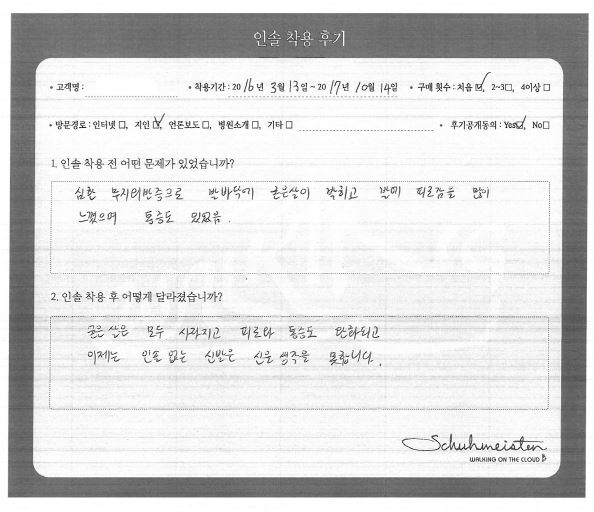 인솔 착용 후기
• 고객명 : • 착용기간 : 2016년 3월 13일 ~ 2017년 10월 14일 • 구매 횟수 : 처음 ☑, 2~3☐, 4이상 ☐
• 방문경로 : 인터넷 ☐, 지인 ☑, 언론보도 ☐, 병원소개 ☐, 기타 ☐ • 후기공개동의 : Yes☑, No☐
1. 인솔 착용 전 어떤 문제가 있었습니까?
심한 무지외반증으로 발바닥에 굳은살이 박히고 발에 피로감을 많이
느꼈으며 통증도 있었음.
2. 인솔 착용 후 어떻게 달라졌습니까?
굳은 살은 모두 사라지고 피로와 통증도 완화되고
이제는 인솔 없는 신발은 신을 생각을 못합니다.
Schuhmeister
WALKING ON THE CLOUD B